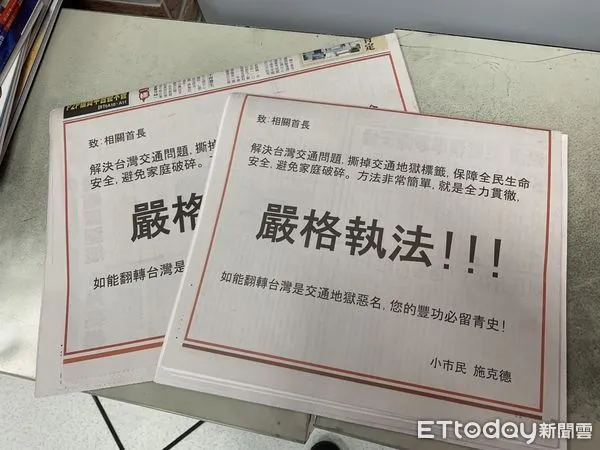 致：相關首長
解決台灣交通問題，撕
安全，避免家庭破碎。
嚴格
如能翻轉台灣是
致：相關首長
解決台灣交通問題，撕掉交通地獄標籤，保障全民生命
安全，避免家庭破碎。方法非常簡單，就是全力貫徹，
嚴格執法！！！
如能翻轉台灣是交通地獄惡名，您的豐功必留青史！
小市民 施克德
ETtoday新聞雲